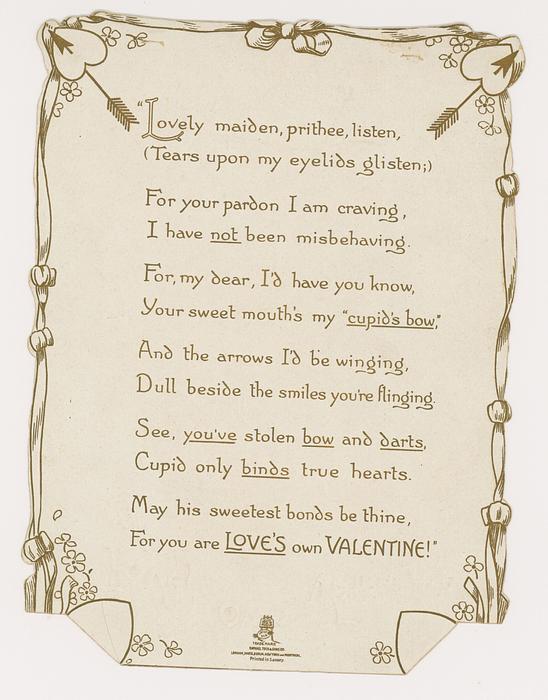 "Lovely maiden, prithee, listen,
(Tears upon my eyelids glisten;)
For your pardon I am craving,
I have not been misbehaving.
For, my dear, I'd have you know,
Your sweet mouth's my "cupid's bow,"
And the arrows I'd be winging,
Dull beside the smiles you're flinging.
See, you've stolen bow and darts,
Cupid only binds true hearts.
May his sweetest bonds be thine,
For you are LOVE'S own VALENTINE!"
TRADE MARK
RAPHAEL TUCK & SONS LTD
LONDON, PARIS, BERLIN, NEW YORK AND MONTREAL.
Printed in Saxony.